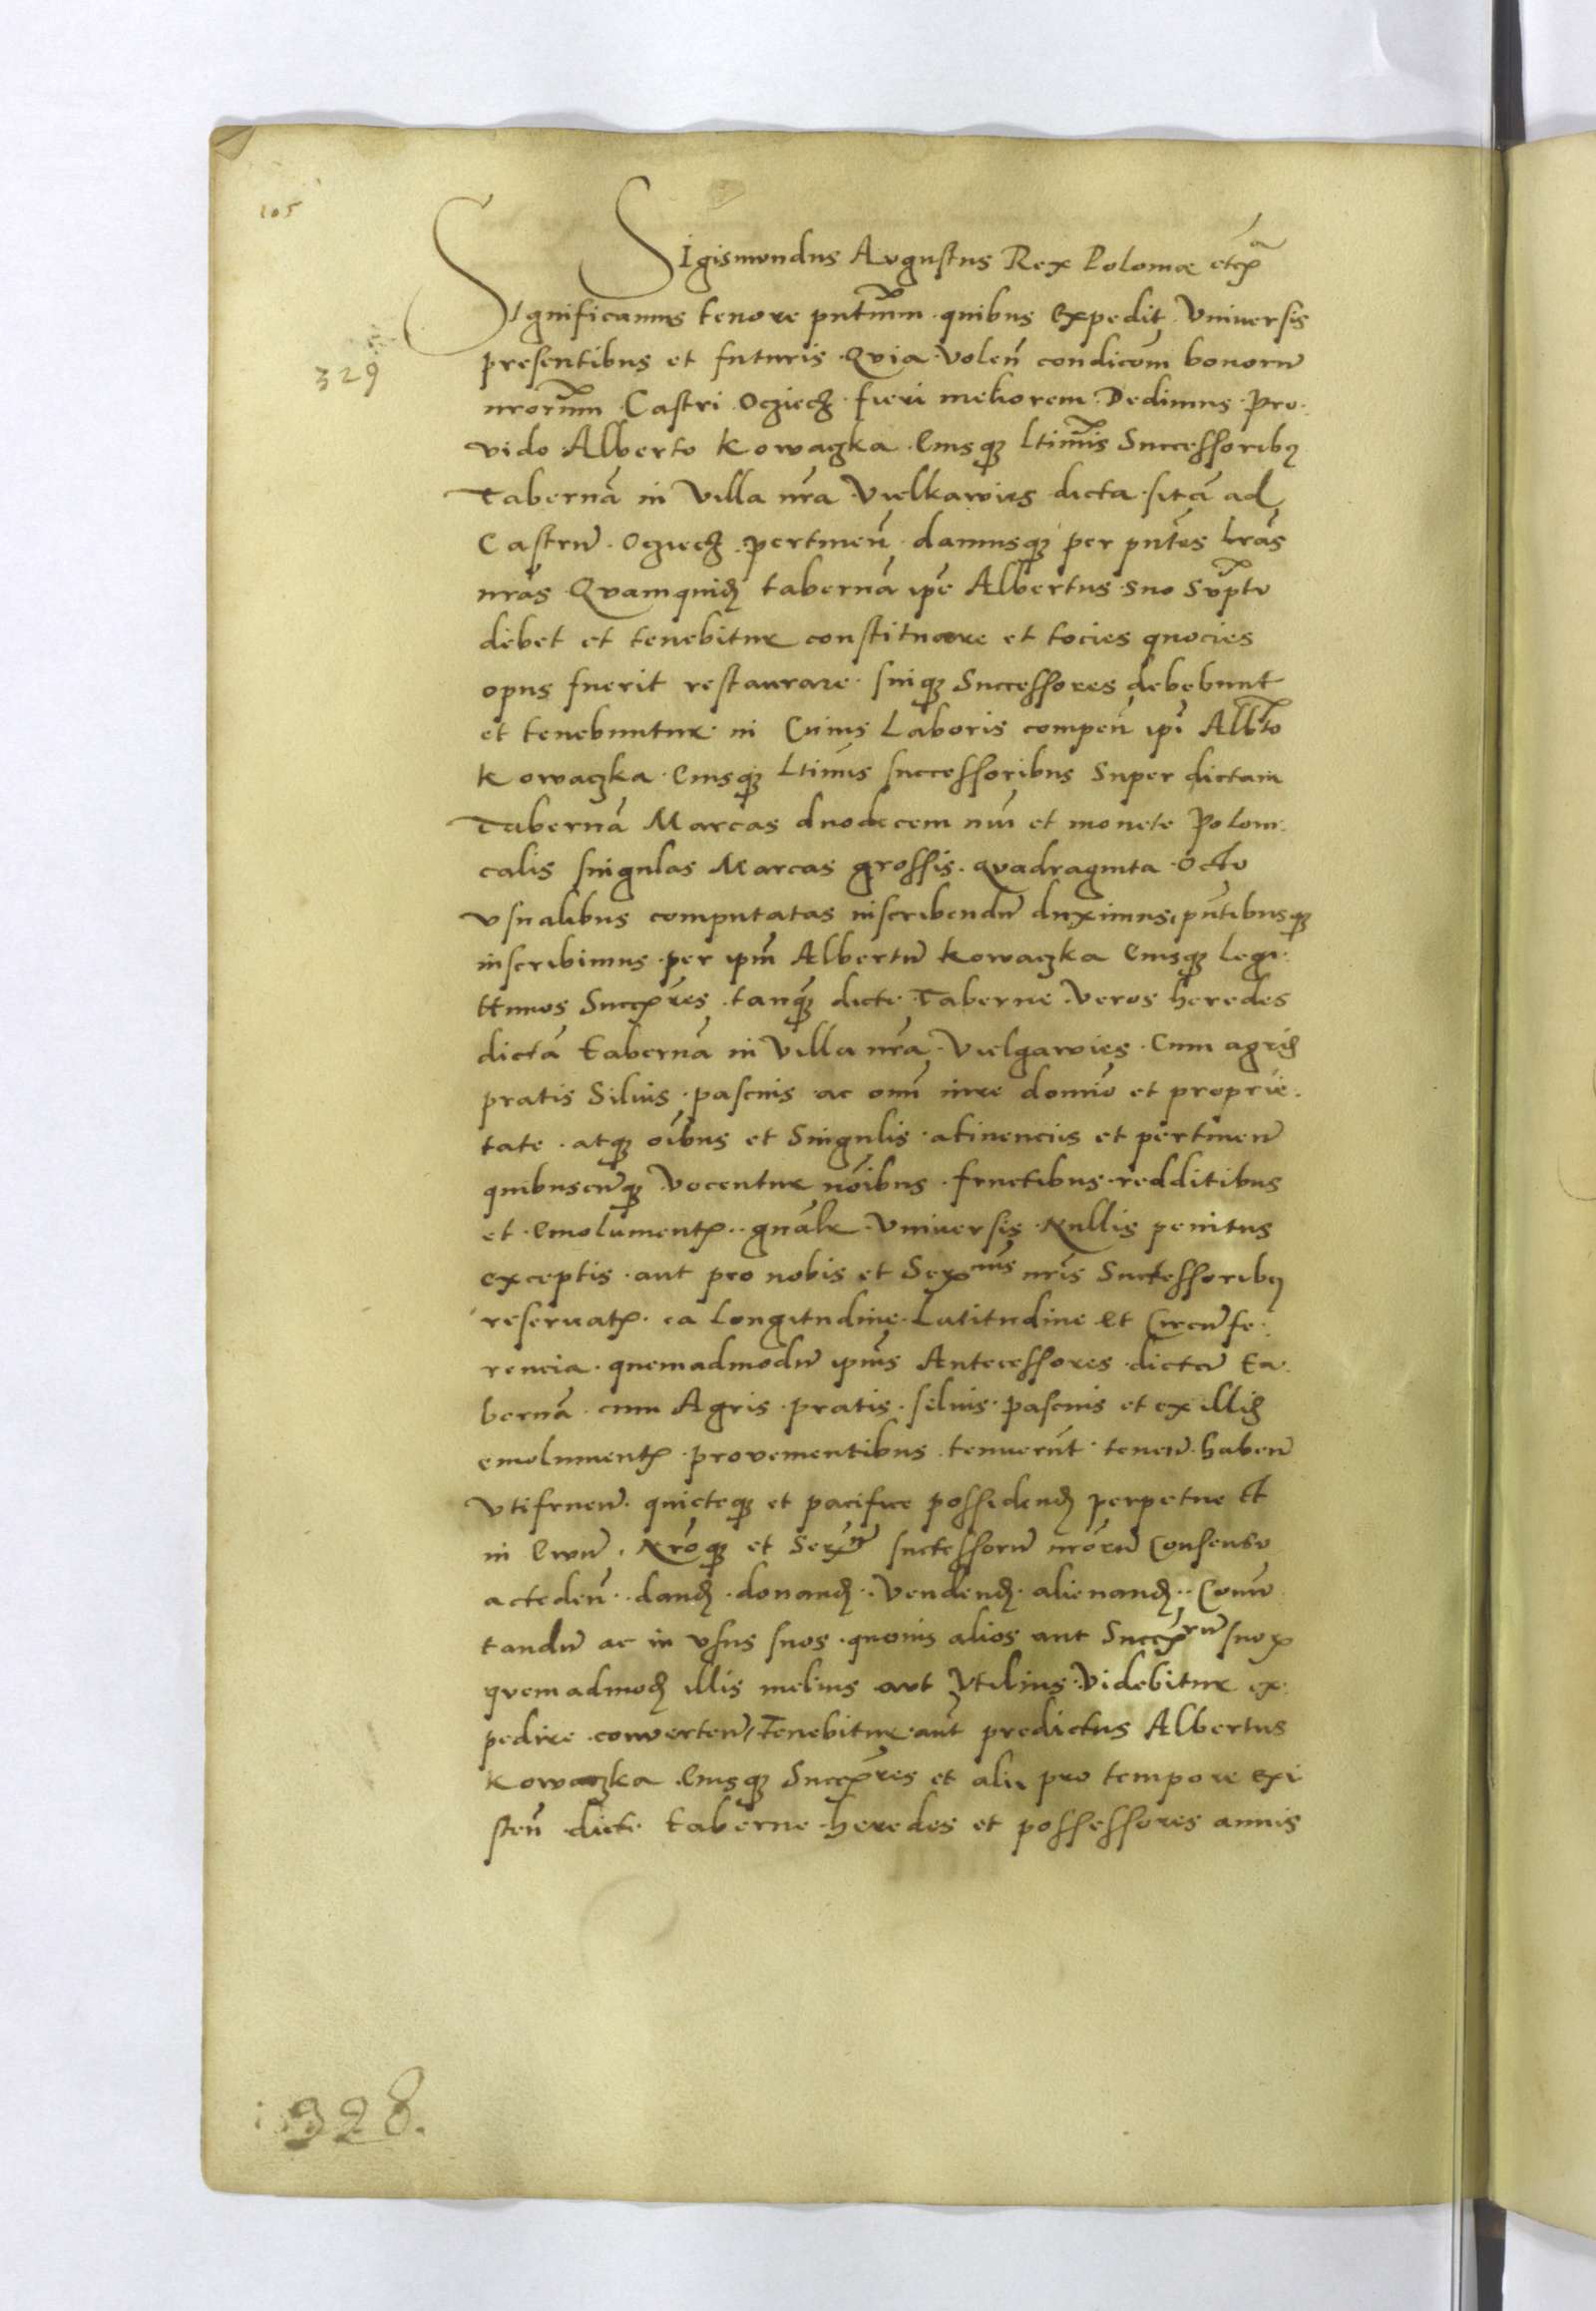 105
Sigismundus Augustus Rex Polonie etcꝭ
Significamus tenore pntium · quibus expedit Vniuersis
329
presentibus et futuris · Qvia Volen̄ condicōm bonorū
nrorum Castri Ocziecz · fieri meliorem Dedimus · Pro
vido Alberto Kowaczka Eiusqꝫ Ltimis Successoribꝰ
Tabernā in Villa nr̄a Vielkawies dicta · sitā ad
Castrū · Ocziecz pertinen̄ damusqꝫ per pn̄tes lrās
nrās Qvamquidē tabernā ip̄e Albertus suo sūptu
debet et tenebitur constituere et tocies quocies
opus fuerit restaurare · suiqꝫ Successores debebunt
et tenebuntur · in Cuius Laboris compen̄ ip̄i Albto
Kowaczka · Eiusqꝫ Ltimis successoribus Super dictam
Tabernā Marcas duodecem nūi et monete Poloni
calis singulas Marcas grossis · quadraginta · Octo
vsualibus computatas inscribendū duximus, pn̄tibusqꝫ
inscribimus · per ipm̄ Albertū Kowaczka Eiusqꝫ legi
ttimos Succꝭres · tanqꝫ dicte Taberne Veros heredes
dictā tabernā in Villa nr̄a Vielgawies · Cum agris
pratis Siluis · pascuis ac omī iure dominō et proprie
tate · atqꝫ oībus et Singulis · atinenciis et pertinen̄
quibuscūqꝫ Vocentur nōibus · fructibus · redditibus
et · Emolumentꝭ · gnāle · Vniuersis · Nullis penitus
exceptis · aut pro nobis et Serꝭmis nrīs Successoribꝰ
reseruatꝭ · ea Longitudine · Latitudine et Circūfe
rencia · quemadmodū ipius Antecessores · dictā ta
bernā · cum Agris · pratis · siluis · pascuis et ex illis
emolumentꝭ · prouenientibus · tenuerūt · tenen̄ · haben̄
Vtifruen̄ · quieteqꝫ et pacifice possidendꝫ perpetue et
in Ewū · Nrōqꝫ et Serꝭ successorū nrōrū Consensu
acceden̄ · dandꝫ · donandꝫ · Vendendꝫ · alienandꝫ · Comū
tandū ac in vsus suos · quouis alios aut Succꝭrū suoꝝ
quemadmodꝫ illis melius aut Vtilius · Videbitur ex
pedire · conuerten̄, Tenebitur · aut̄ predictus Albertus
Kowaczka Eiusqꝫ Succꝭres et alii pro tempore exi
sten̄ dicte taberne · heredes et possessores annis
328.